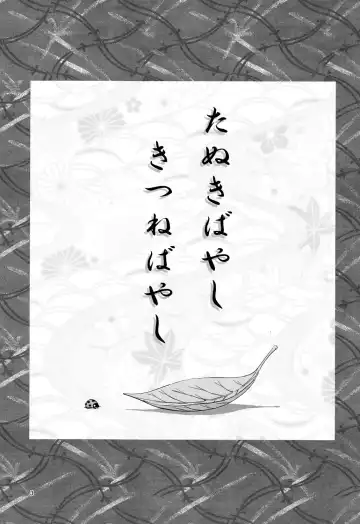 たぬきばやし
きつねばやし
3